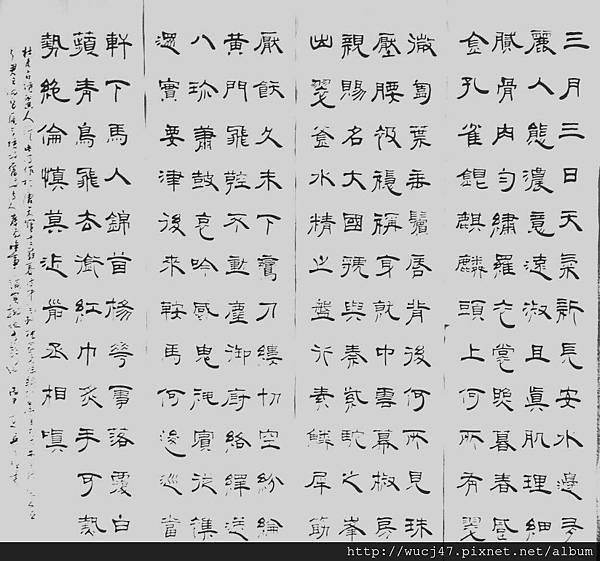 三月三日天氣新長安水邊多
麗人態濃意遠淑且真肌理細
膩骨肉勻繡羅衣裳照暮春蹙
金孔雀銀麒麟頭上何所有翠
微㔩葉垂鬢唇背後何所見珠
壓腰衱穩稱身就中雲幕椒房
親賜名大國虢與秦紫駝之峯
出翠釜水精之盤行素鱗犀筯
厭飫久未下鸞刀縷切空紛綸
黃門飛鞚不動塵御廚絡繹送
八珍蕭鼓哀吟感鬼神賓從雜
遝實要津後來鞍馬何逡巡當
軒下馬人錦茵楊花雪落覆白
蘋青鳥飛去銜紅巾炙手可熱
勢絕倫慎莫近前丞相嗔
http://wucj47.pixnet.net/album